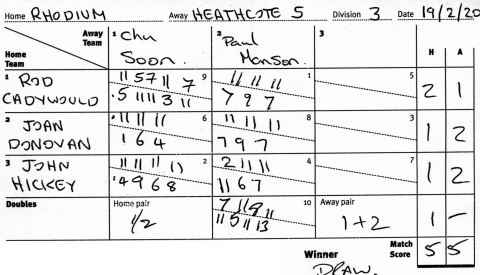 Home RHODIUM Away HEATHCOTE 5 Division 3 Date 19/2/20
Away Team 1 Chu Soon. 2 Paul Monson. 3 H A
Home Team
1 ROD CADYWOULD 11 5 7 11 7 9 11 11 11 1 5 2 1
5 11 11 3 11 7 9 7
2 JOAN DONOVAN 11 11 11 6 11 11 11 8 3 1 2
1 6 4 7 9 7
3 JOHN HICKEY 11 11 11 11 2 2 11 11 4 7 1 2
4 9 6 8 11 6 7
Doubles Home pair 1/2 7 11 9 11 10 Away pair 1+2 1 –
11 5 11 13
Winner Match Score 5 5
DRAW.